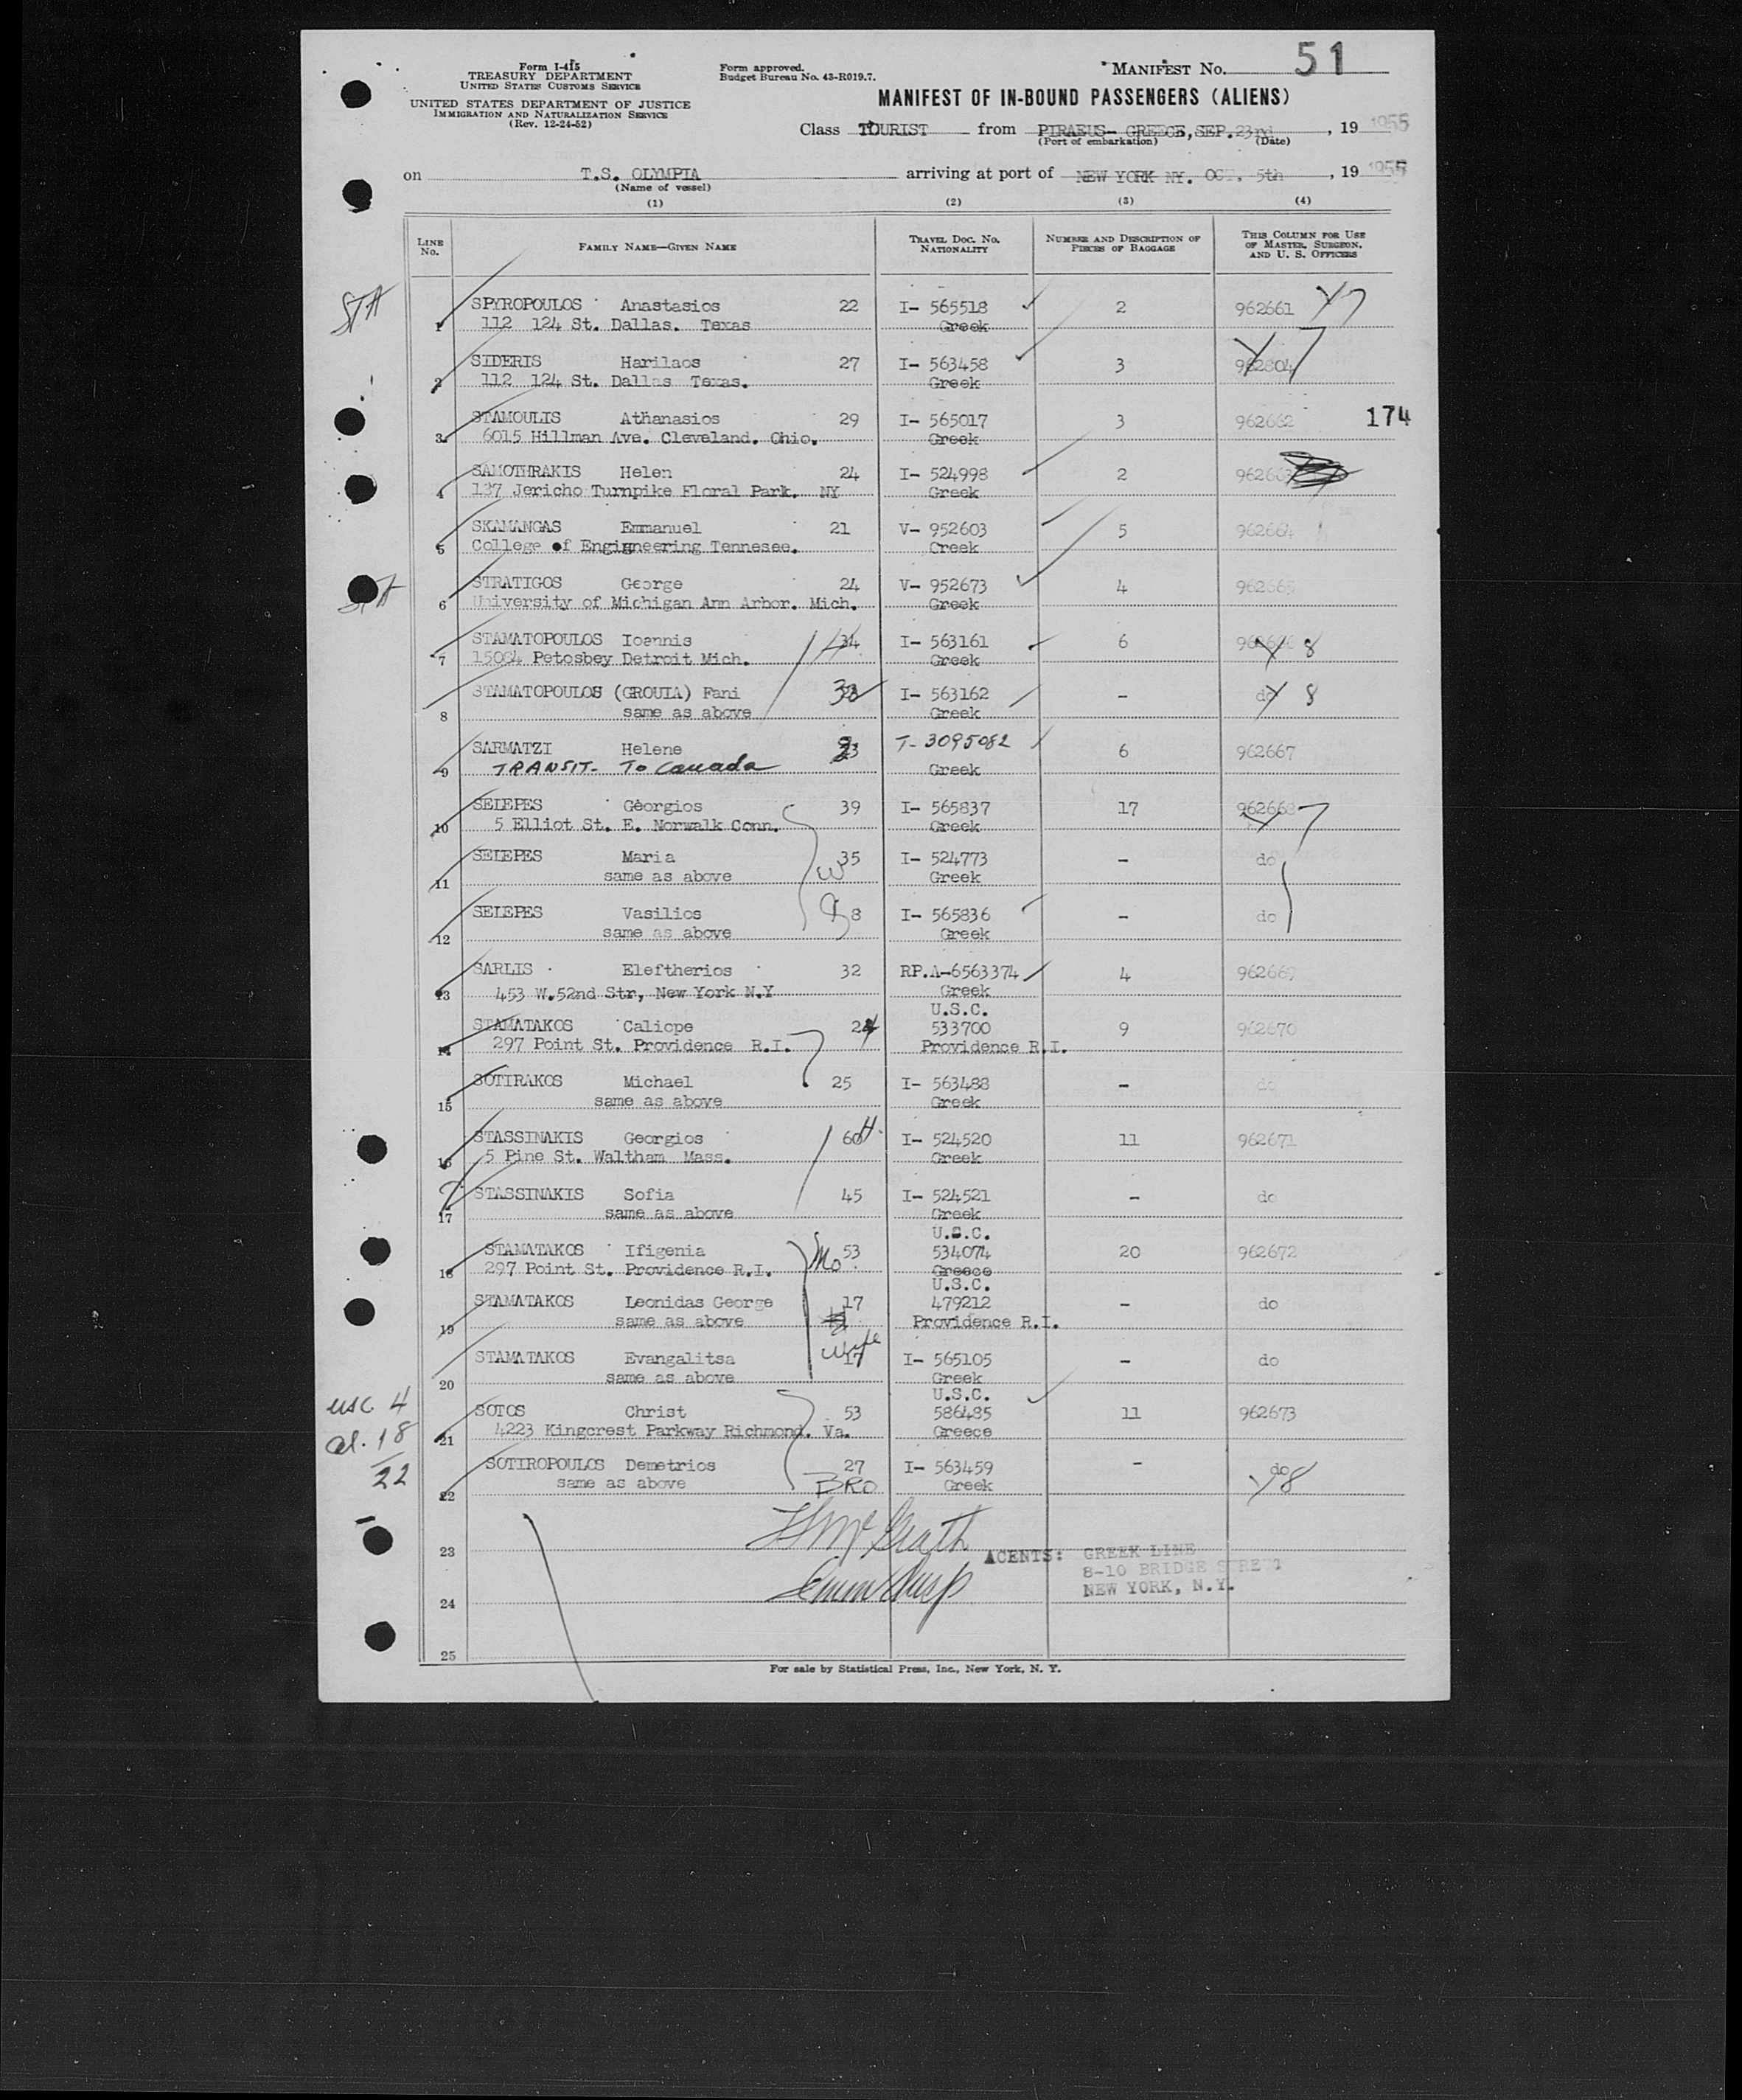 Form I-415
TREASURY DEPARTMENT
UNITED STATES CUSTOMS SERVICE
UNITED STATES DEPARTMENT OF JUSTICE
IMMIGRATION AND NATURALIZATION SERVICE
(Rev. 12-24-52)
Form approved.
Budget Bureau No. 43-R019.7.
MANIFEST No. 51
MANIFEST OF IN-BOUND PASSENGERS (ALIENS)
Class TOURIST from PIRAEUS- GREECE, SEP. 23rd, 19 1955
(Port of embarkation) (Date)
on T.S. OLYMPIA arriving at port of NEW YORK NY. OCT. 5th, 19 1955
(Name of vessel)
(1) (2) (3) (4)
LINE No. FAMILY NAME—GIVEN NAME TRAVEL DOC. No. NATIONALITY NUMBER AND DESCRIPTION OF PIECES OF BAGGAGE THIS COLUMN FOR USE OF MASTER, SURGEON, AND U. S. OFFICERS
STA
SPYROPOULOS Anastasios 22 I- 565518 2 962661 Y7
1 112 124 St. Dallas. Texas Greek
SIDERIS Harilaos 27 I- 563458 3 962804 Y7
2 112 124 St. Dallas Texas. Greek
STAMOULIS Athanasios 29 I- 565017 3 962662 174
3 6015 Hillman Ave. Cleveland. Ohio. Greek
SAMOTHRAKIS Helen 24 I- 524998 2 962663
4 137 Jericho Turnpike Floral Park. NY Greek
SKAMANGAS Emmanuel 21 V- 952603 5 962664
5 College of Engigneering Tennesee. Greek
STRATIGOS George 24 V- 952673 4 962665
STA
6 University of Michigan Ann Arbor. Mich. Greek
STAMATOPOULOS Ioannis 34 I- 563161 6 962666 Y 8
7 15004 Petosbey Detroit Mich. Greek
STAMATOPOULOS (GROUIA) Fani 38 I- 563162 - do Y 8
8 same as above Greek
SARMATZI Helene 23 T- 3095082 6 962667
9 TRANSIT- To Canada Greek
SELEPES Georgios 39 I- 565837 17 962668 Y7
10 5 Elliot St. E. Norwalk Conn. Greek
SELEPES Maria 35 I- 524773 - do
11 same as above W Greek
SELEPES Vasilios 8 I- 565836 - do
12 same as above Greek
SARLIS Eleftherios 32 RP.A-6563374 4 962669
13 453 W.52nd Str, New York N.Y Greek
U.S.C.
STAMATAKOS Caliope 24 533700 9 962670
14 297 Point St. Providence R.I. Providence R.I.
SOTIRAKOS Michael 25 I- 563488 - do
15 same as above Greek
STASSINAKIS Georgios 60 H. I- 524520 11 962671
16 5 Pine St. Waltham Mass. Greek
STASSINAKIS Sofia 45 I- 524521 - do
17 same as above Greek
U.S.C.
STAMATAKOS Ifigenia Mo. 53 534074 20 962672
18 297 Point St. Providence R.I. Greece
U.S.C.
STAMATAKOS Leonidas George 17 479212 - do
19 same as above Providence R.I.
STAMATAKOS Evangalitsa Wife 17 I- 565105 - do
20 same as above Greek
U.S.C.
usc 4
SOTOS Christ 53 586485 11 962673
al. 18
21 4223 Kingcrest Parkway Richmond. Va. Greece
22
SOTIROPOULOS Demetrios 27 I- 563459 - do
22 same as above BRO Greek Y8
23
24
25
AGENTS: GREEK LINE
8-10 BRIDGE STREET
NEW YORK, N.Y.
For sale by Statistical Press, Inc., New York, N. Y.